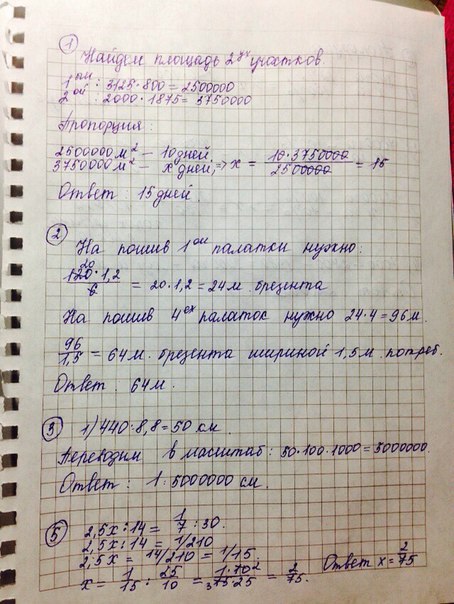 1
Найдём площадь 2ух участков.
1ый : 3125·800 = 2500000
2ой : 2000·1875 = 3750000
Пропорция:
2500000м² — 10 дней
3750000м² — x дней, ⇒ x = 10·3750000 / 2500000 = 15
Ответ: 15 дней.
2
На пошив 1ой палатки нужно:
20
120·1,2 / 6 = 20·1,2 = 24м брезента
На пошив 4ох палаток нужно 24·4 = 96м.
96/1,5 = 64м. брезента шириной 1,5м. потреб.
Ответ. 64м.
3
1) 440:8,8 = 50 км.
Переводим в масштаб: 50·100·1000 = 5000000.
Ответ: 1:5000000 см.
5
2,5x:14 = 1/7 : 30.
2,5x:14 = 1/210
2,5x = 14/210 = 1/15.
x = 1/15 : 25/10 = 1·10² / 375·25 = 2/75. Ответ x = 2/75